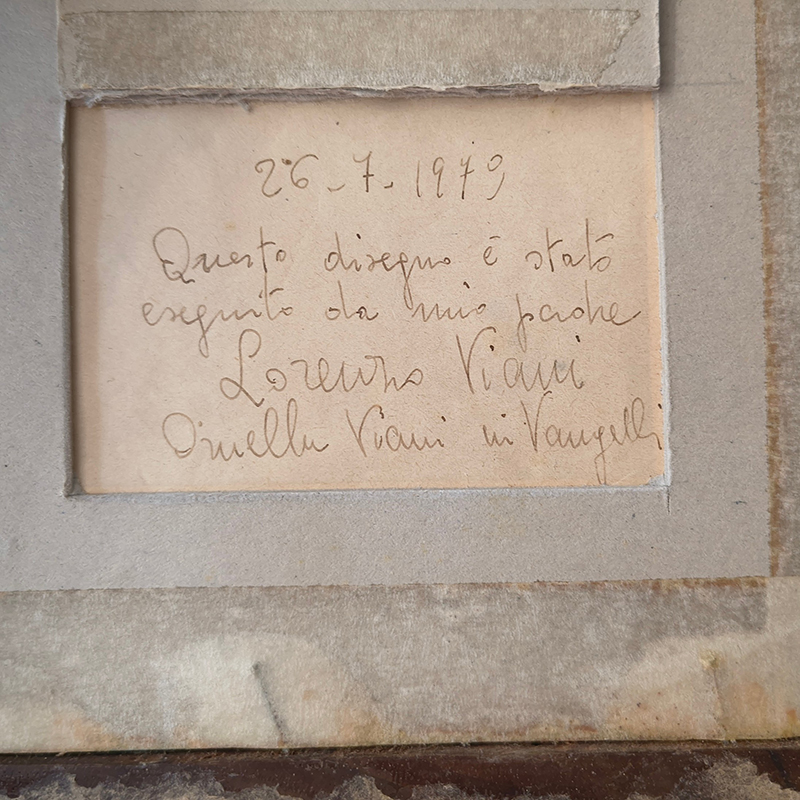 26-7-1979
Questo disegno è stato
eseguito da mio padre
Lorenzo Viani
Ornella Viani in Vangelli